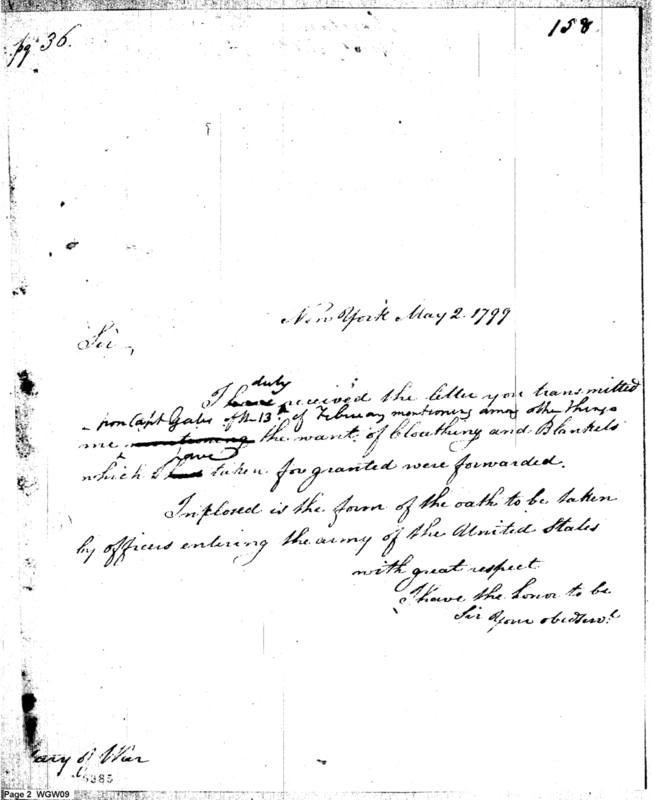 pg 36.
158
New York May 2. 1799
Sir
duly
I have received the letter you transmitted
from Capt Gates of the 13th of February mentioning among other things
me mentioning the want of Cloathing and Blankets
have
which I had taken for granted were forwarded.
Inclosed is the form of the oath to be taken
by officers entering the army of the United States
with great respect
I have the honor to be
Sir Your obed servt
ary of War
6385
Page 2 WGW09